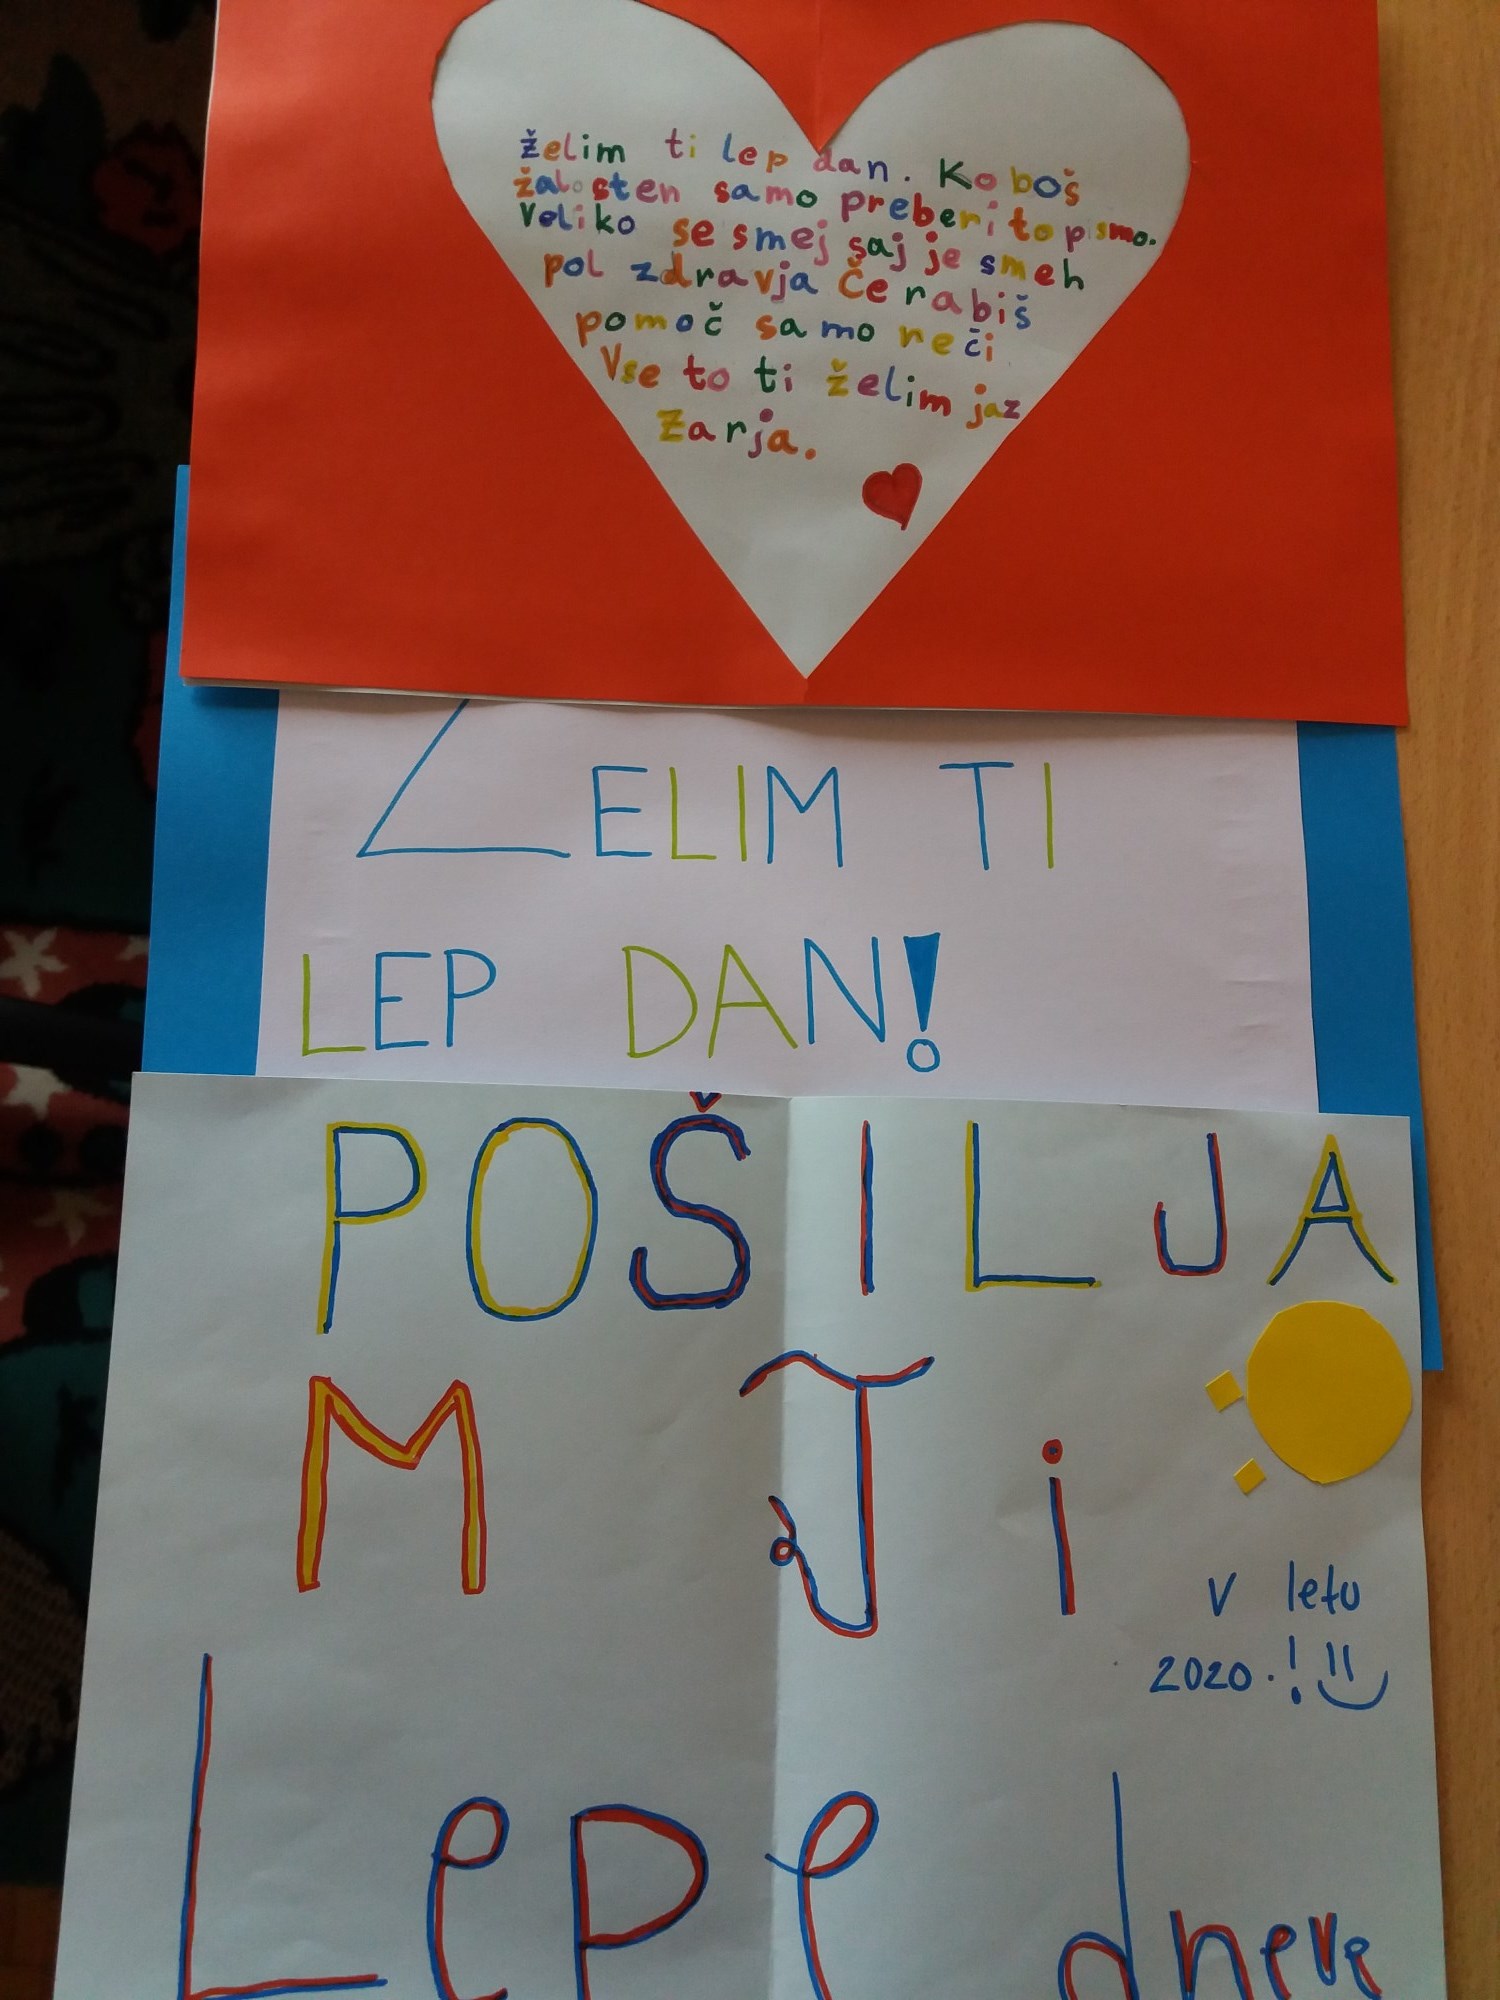 želim ti lep dan. Ko boš
žalosten samo preberi to pismo.
Veliko se smej saj je smeh
pol zdravja Če rabiš
pomoč samo reči
Vse to ti želim jaz
Zarja.
ZELIM TI
LEP DAN!
POŠILJA
M Ti
v letu
2020.!
Lepe dneve